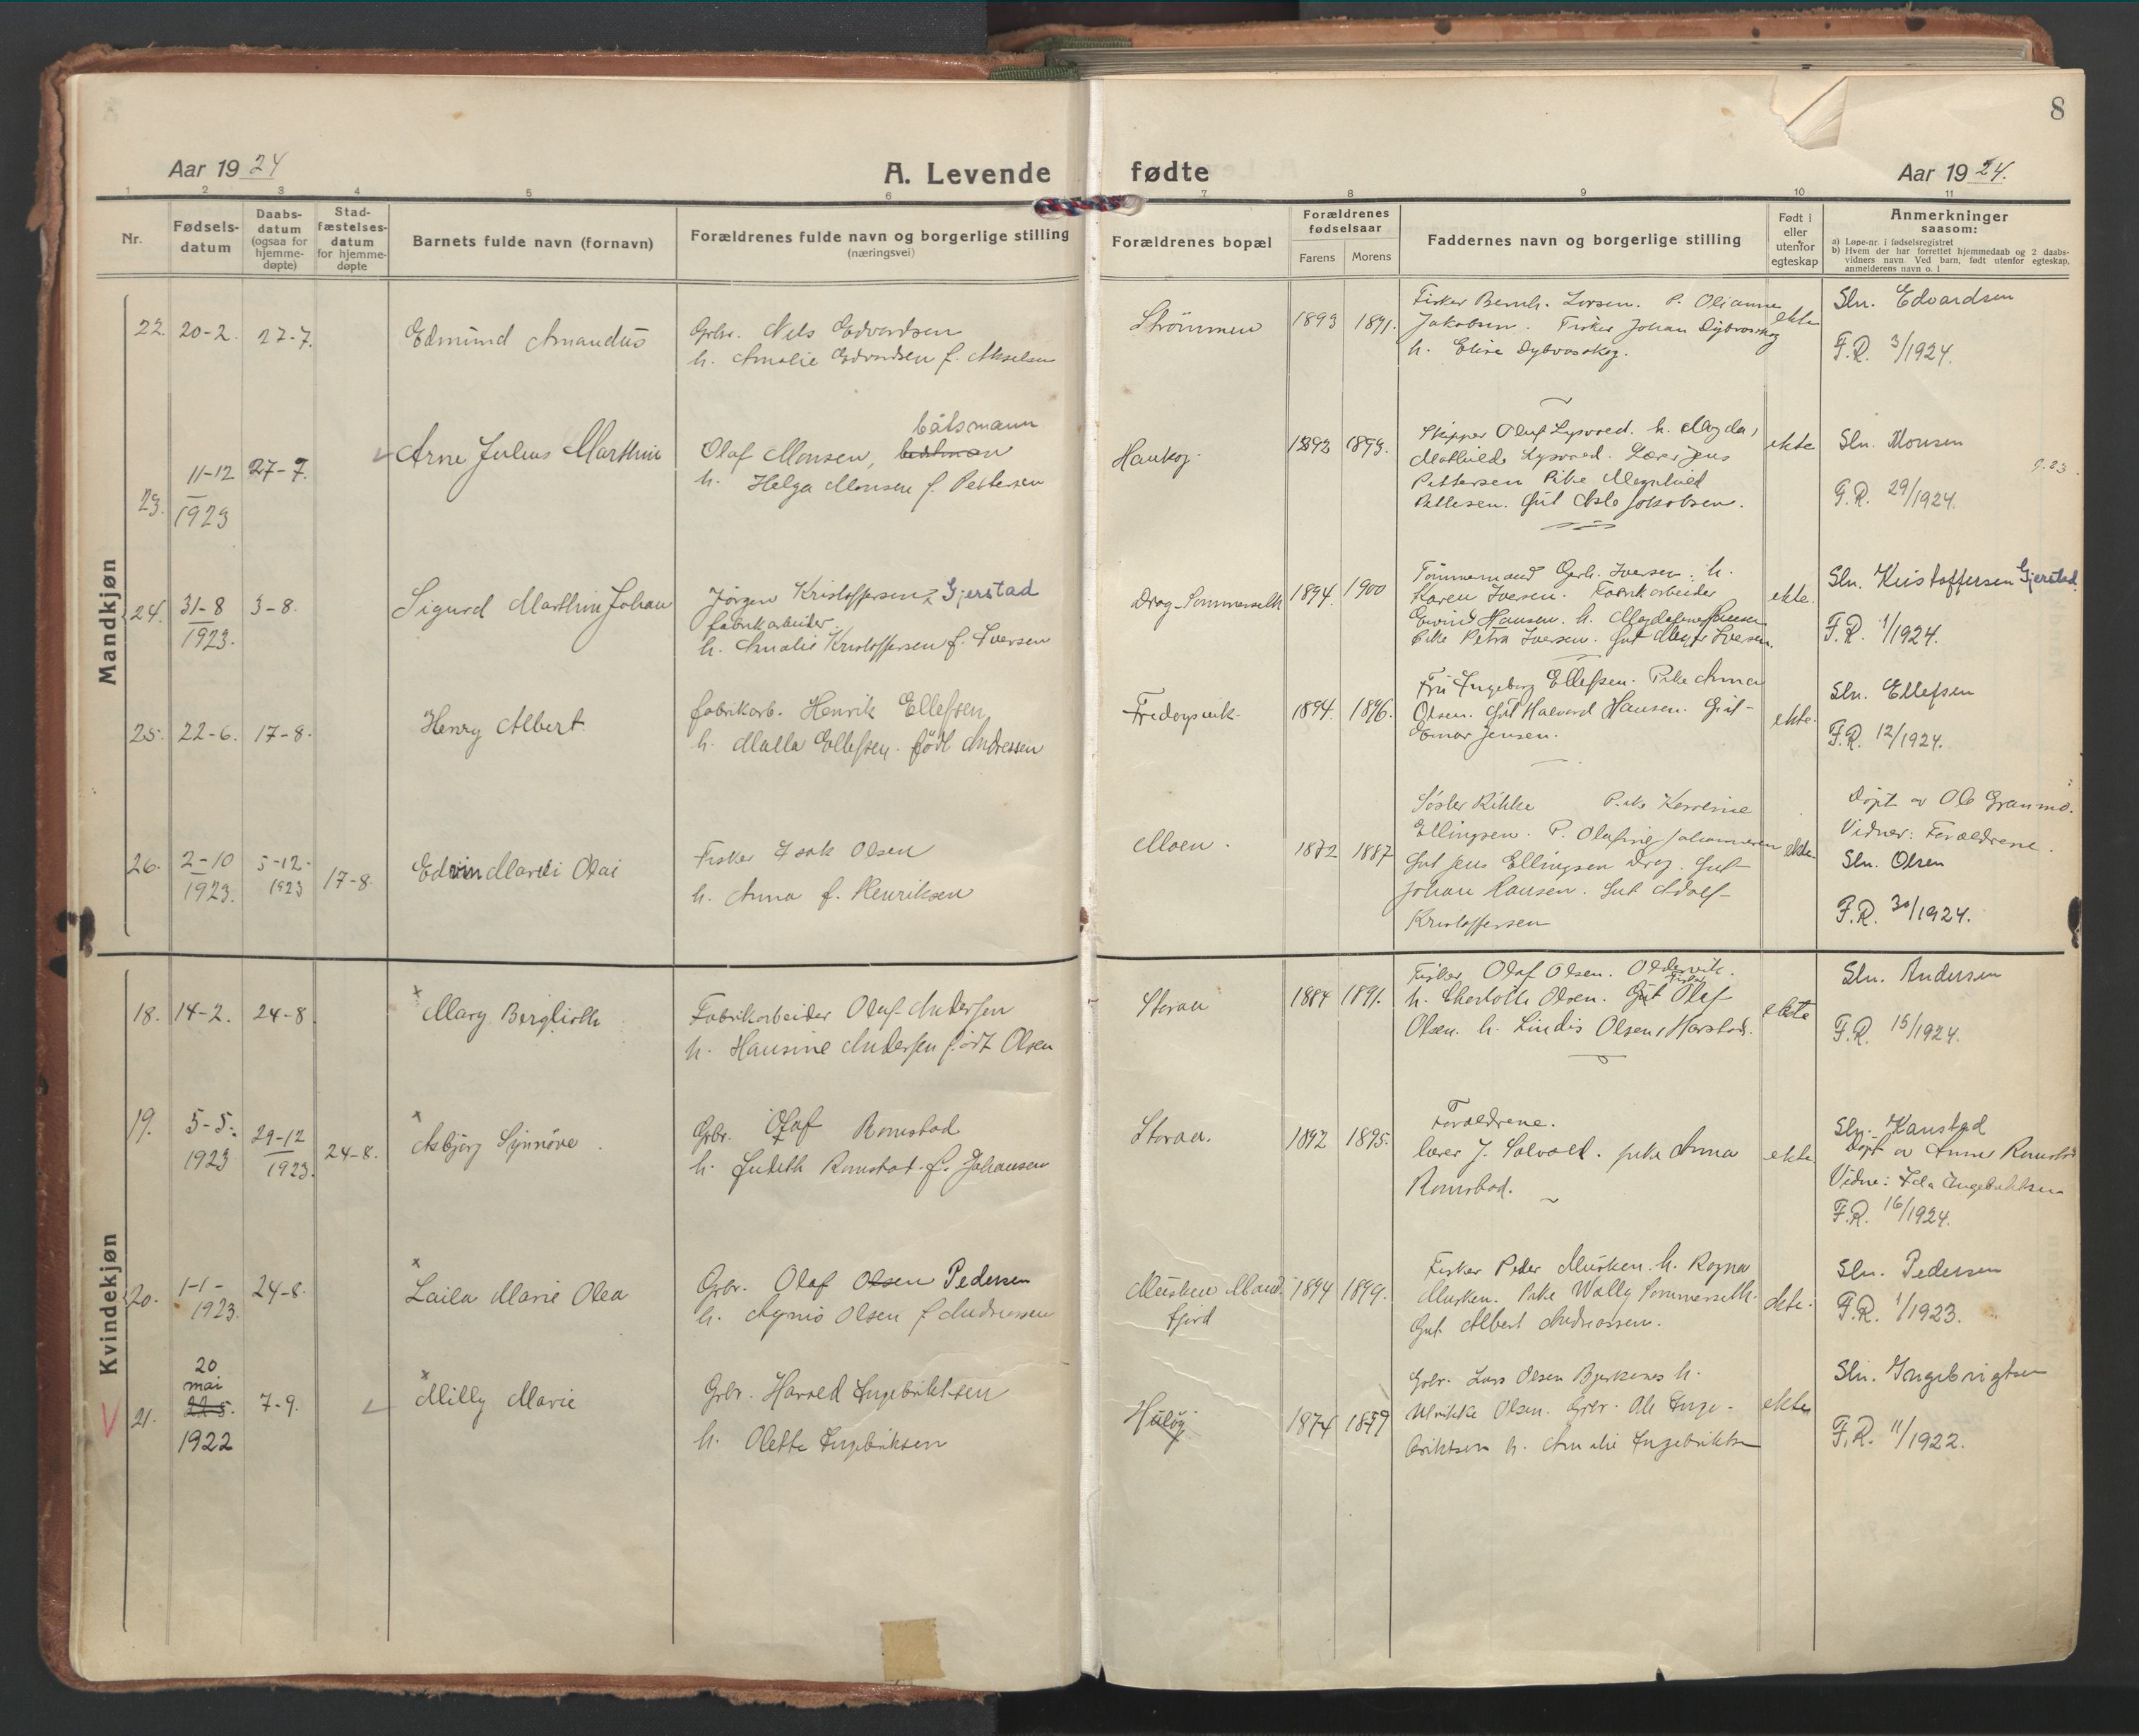 8
Aar 1924
A. Levende fødte
Aar 1924.
1 2 3 4 5 6 7 8 9 10 11
Nr.
Fødsels-
datum
Daabs-
datum
(ogsaa for
hjemme-
døpte)
Stad-
fæstelses-
datum
for hjemme-
døpte
Barnets fulde navn (fornavn)
Forældrenes fulde navn og borgerlige stilling
(næringsvei)
Forældrenes bopæl
Forældrenes
fødselsaar
Farens Morens
Faddernes navn og borgerlige stilling
Født i
eller
utenfor
egteskap
Anmerkninger
saasom:
a) Løpe-nr. i fødselsregistret
b) Hvem der har forrettet hjemmedaab og 2 daabs-
vidners navn. Ved barn, født utenfor egteskap,
anmelderens navn o. l
Mandkjøn
22. 20-2. 27-7.
Edmund Amandus
Grbr. Nils Edvardsen
h. Amalie Edvardsen f. Akselsen
Strømmen
1893 1891.
Fisker Bernh. Larsen. P. Olianna
Jakobsen. Fisker Johan Dybvasskog
h. Elise Dybvasskog.
ekte
Sln. Edvardsen
F.R. 3/1924.
23. 11-12 1923 27-7.
Arne Julius Marthin
båtsmann
Olaf Monsen,
h. Helga Monsen f. Pettersen
Haukøy
1892 1893.
Skipper Oluf Lysvoed. h. Magda,
Mathilde Lysvoed. Lærer Jens
Pettersen Pike Magnhild
Pettersen. Gut Asle Jakobsen.
ekte
Sln. Monsen
F.R. 29/1924.
24. 31-8 1923. 3-8.
Sigurd Marthin Johan
Jørgen Kristoffersen Gjerstad
fabrikarbeider.
h. Amalie Kristoffersen f. Iversen
Drag Sommerseth
1894. 1900
Tømmermand Gerh. Iversen. h.
Karen Iversen. Fabrikarbeider
Eivind Hansen. h. Magdalena Hansen
Pike Petra Iversen. Gut Iversen.
ekte.
Sln. Kristoffersen Gjerstad.
F.R. 1/1924.
25. 22-6. 17-8.
Henry Albert
fabrikarb. Henrik Ellefsen
h. Malla Ellefsen. født Andressen
Fredagsvik
1894. 1896.
Fru Ingeborg Ellefsen. Pike Anna
Olsen. Gut Halvard Hansen. Gut
Einar Jensen.
ekte.
Sln. Ellefsen
F.R. 12/1924.
26. 2-10 1923. 5-12- 1923 17-8.
Edvin Olai
Fisker Isak Olsen
h. Anna f. Henriksen
Moen.
1872 1887
Søster Rikke Pike Karoline
Ellingsen. P. Olafine Johannesen
Gut Jens Ellingsen Drag. Gut
Johan Hansen. Gut Adolf
Kristoffersen
ekte.
Døpt av Ole Granmo.
Vidner: Forældrene.
Sln. Olsen
F.R. 30/1924.
Kvindekjøn
18. 14-2. 24-8.
Mary Berglioth
Fabrikarbeider Olaf Andersen
h. Hansine Andersen født Olsen
Storaa
1884 1891.
Fisker Olaf Olsen. Oldervik.
h. Charlotte Olsen. Fisker Olaf
Olsen. h. Lindis Olsen, Harstad.
ekte
Sln. Andersen
F.R. 15/1924.
19. 5-5. 1923 29-12 1923. 24-8.
Asbjørg Synnøve
Grbr. Olaf Romstad
h. Judith Romstad f. Johansen
Storaa.
1892 1895.
Forældrene.
lærer J. Solvoll. pike Anna
Romstad.
ekte.
Sln. Kanstad
Døpt av Anna Romstad
Vidne: Ida Ingebriktsen
F.R. 16/1924.
20. 1-1- 1923. 24-8.
Laila Marie Olea
Grbr. Olaf Olsen Pedersen
h. Agnes Olsen f Andreassen
Musken Mand.
fjord
1894 1899.
Fisker Peder Musken. h. Ragna
Musken. Pike Wally Sommerseth.
Gut Albert Andreassen.
ekte.
Sln. Pedersen
F.R. 1/1923.
21. 20 mai 22-5. 1922 7-9.
Milly Marie
Grbr. Harald Ingebriktsen
h. Olette Ingebriktsen
Huløy
1874 1879
Grbr. Lars Olsen Bjerkenes h.
Ulrikke Olsen. Grbr. Ole Inge-
briktsen h. Amalie Ingebriktsen
ekte
Sln. Ingebrigtsen
F.R. 11/1922.